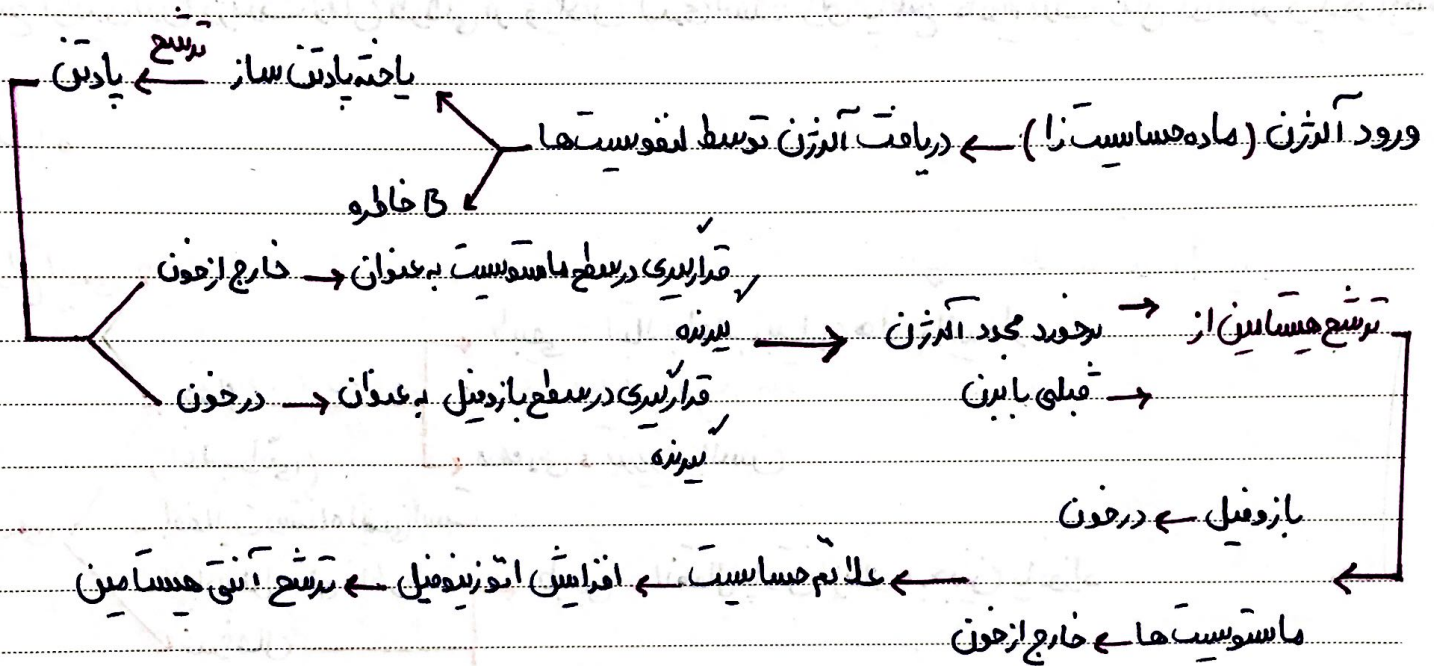 ورود آلرژن (ماده حساسیت زا) ← دریافت آلرژن توسط لنفوسیت‌ها
یاخته پادتن ساز ← ترشح پادتن
B خاطره
خارج از خون → قرارگیری در سطح ماستوسیت به عنوان
گیرنده
در خون → قرارگیری در سطح بازوفیل به عنوان
گیرنده
برخورد مجدد آلرژن → ترشح هیستامین از
قبلی با بدن →
بازوفیل ← در خون
ماستوسیت ها ← خارج از خون
← علائم حساسیت ← افزایش ائوزینوفیل ← ترشح آنتی هیستامین